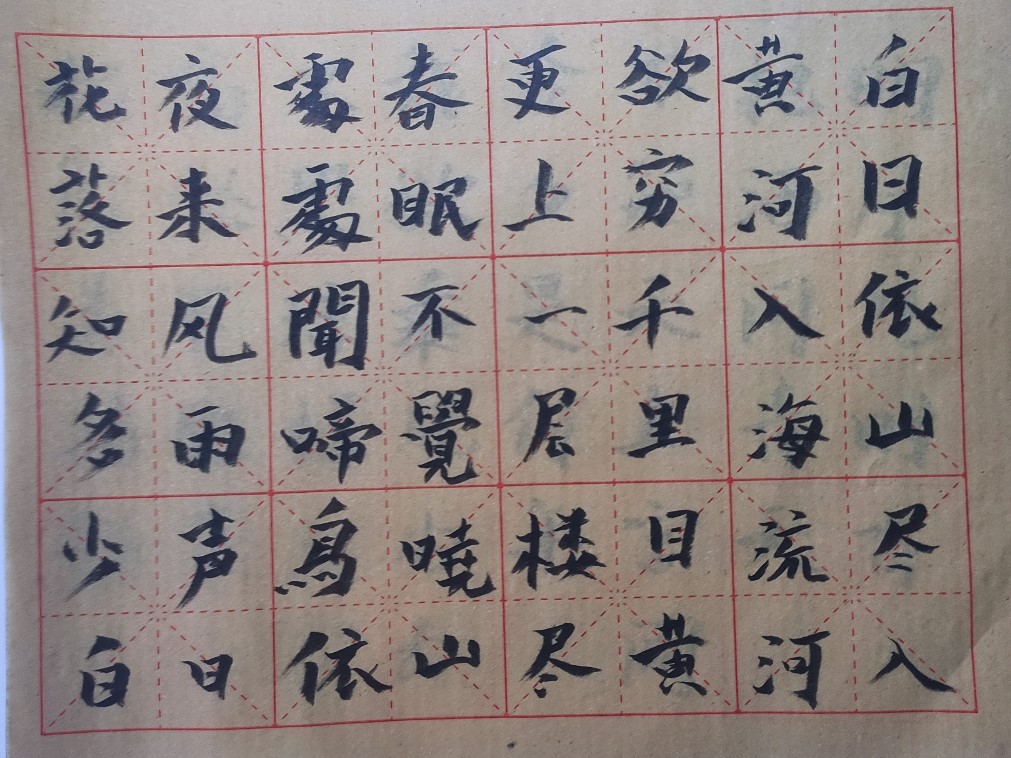 白日依山尽
黄河入海流
欲穷千里目
更上一层楼
春眠不覺曉
處處聞啼鳥
夜来风雨声
花落知多少
白日依山尽黄河入